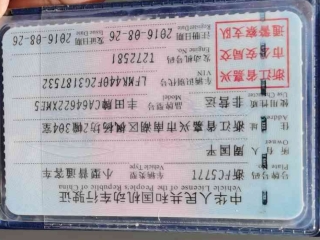 中华人民共和国机动车行驶证
Vehicle License of the People's Republic of China
号牌号码 浙FC577T 车辆类型 小型普通客车
Plate No. Vehicle Type
所有人 周国平
Owner
住址 浙江省嘉兴市南湖区枫杨坊2幢302室
Address
使用性质 非营运 品牌型号 丰田牌CA64622XME5
Use Character Model
浙江省嘉兴
市公安局交
通警察支队
车辆识别代号 LFMK440F2G3187532
VIN
发动机号码 T272581
Engine No.
注册日期 2016-08-26 发证日期 2016-08-26
Register Date Issue Date